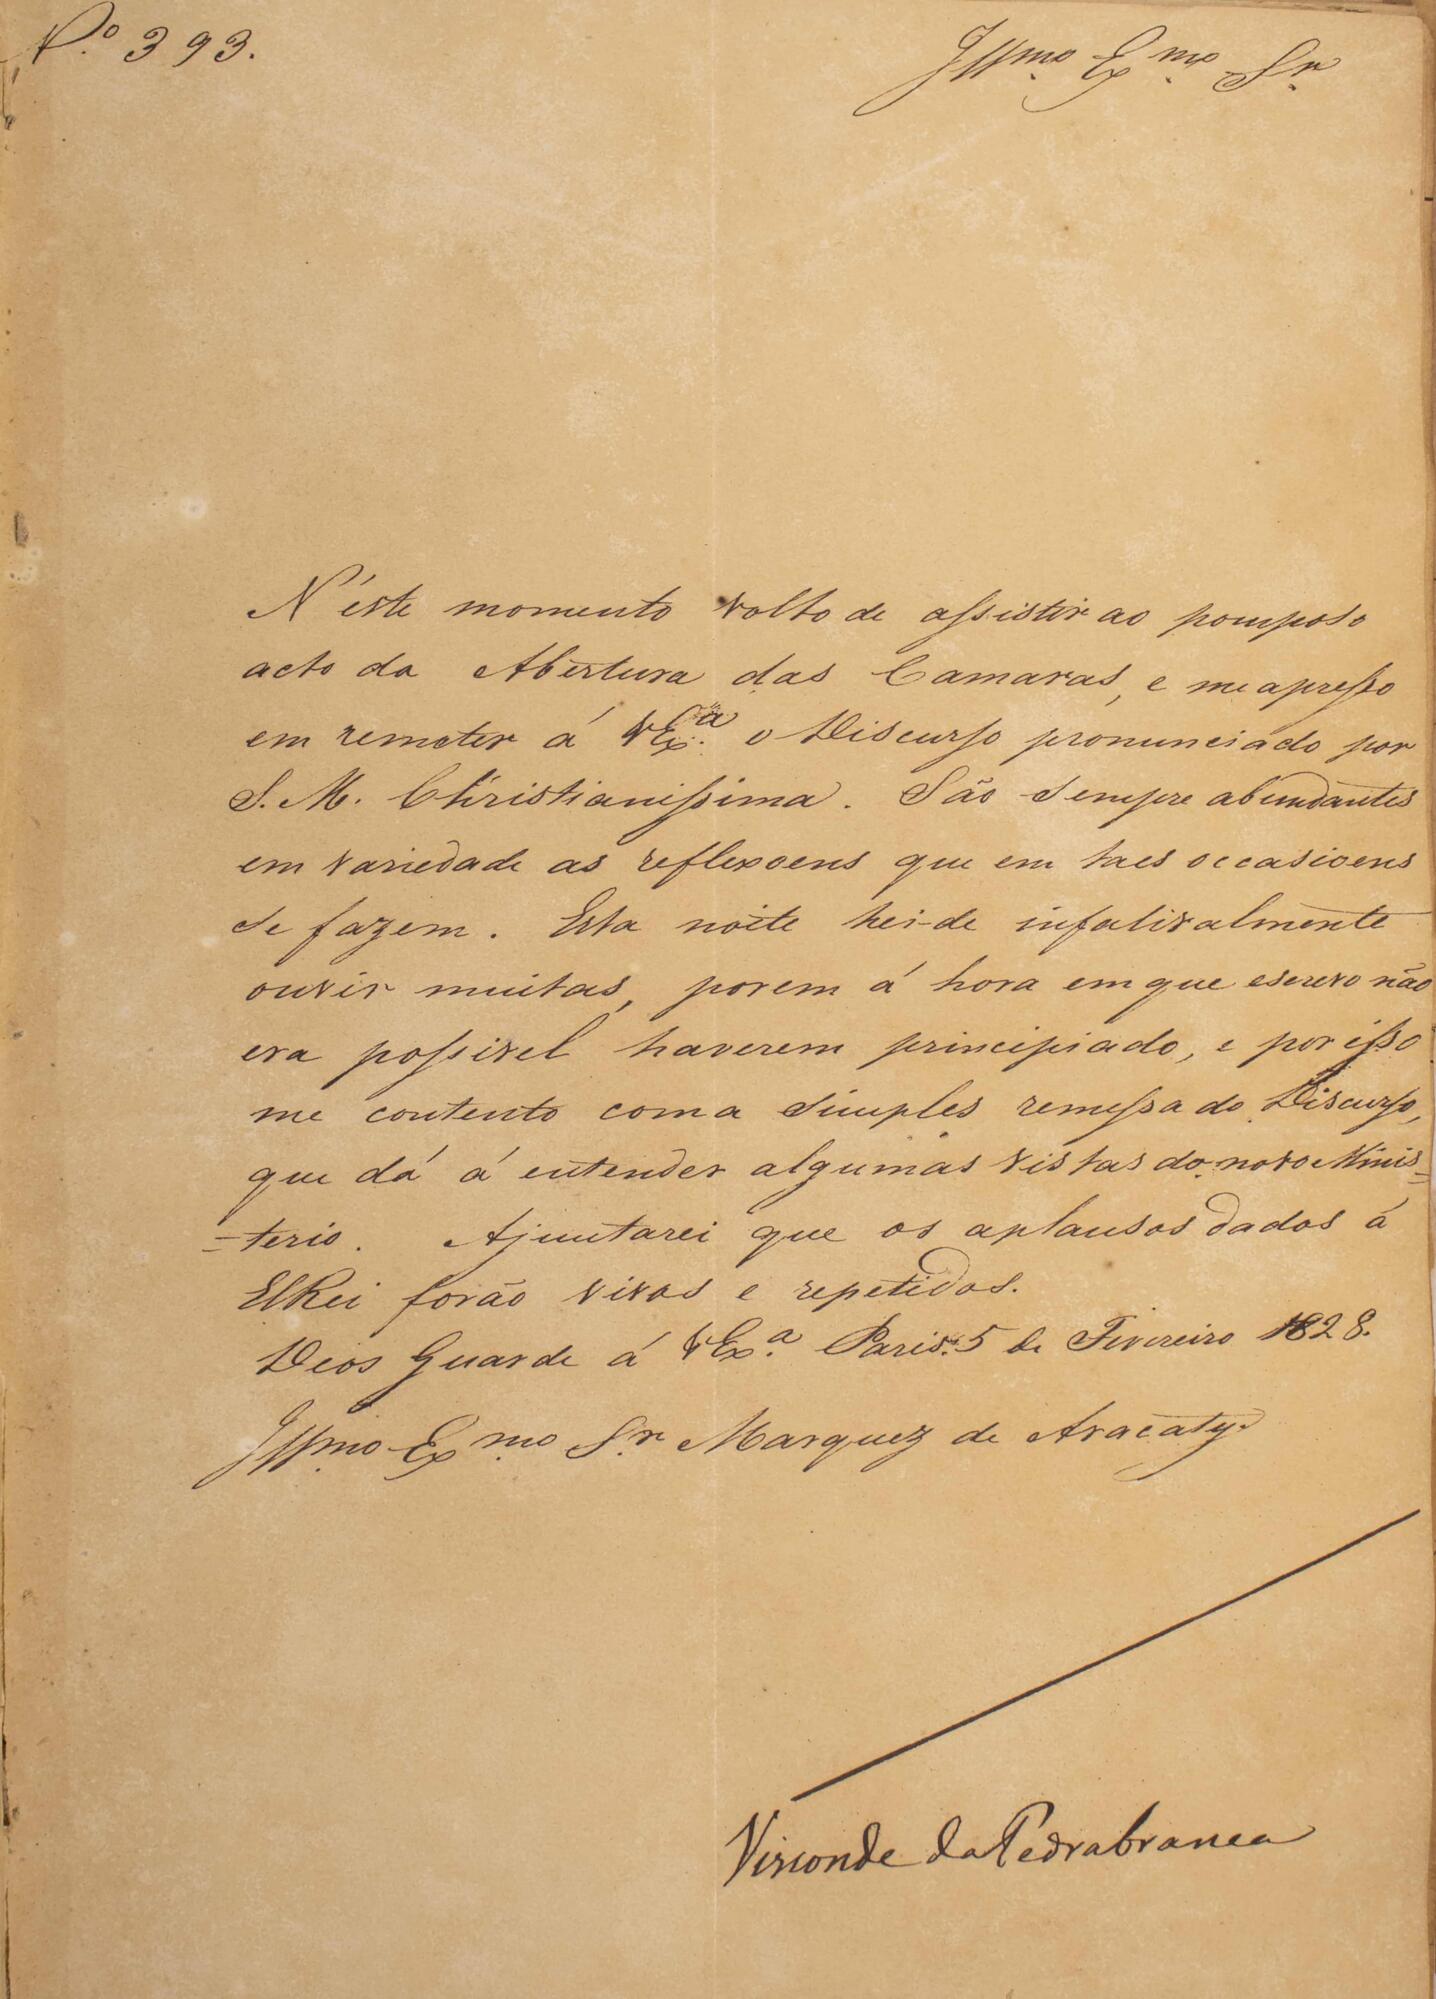 N.º 393.
Illmo. Exmo. Sr.
N'éste momento volto de assistir ao pomposo
acto da Abertura das Camaras, e me apresso
em remeter á VExª. o Discurso pronunciado por
S. M. Christianissima. São sempre abundantes
em variedade as reflexoens que em taes occasioens
se fazem. Esta noite hei-de infalivalmente
ouvir muitas, porem á hora em que escrevo não
era possivel haverem principiado, e por isso
me contento com a simples remessa do Discurso,
que dá á entender algumas vistas do novo Minis=
=terio. Ajuntarei que os aplausos dados á
ElRei forão vivos e repetidos.
Deos Guarde á VExª. Paris. 5 de Fivereiro 1828.
Illmo. Exmo. Sr. Marquez de Aracaty.
Visconde da Pedrabranca